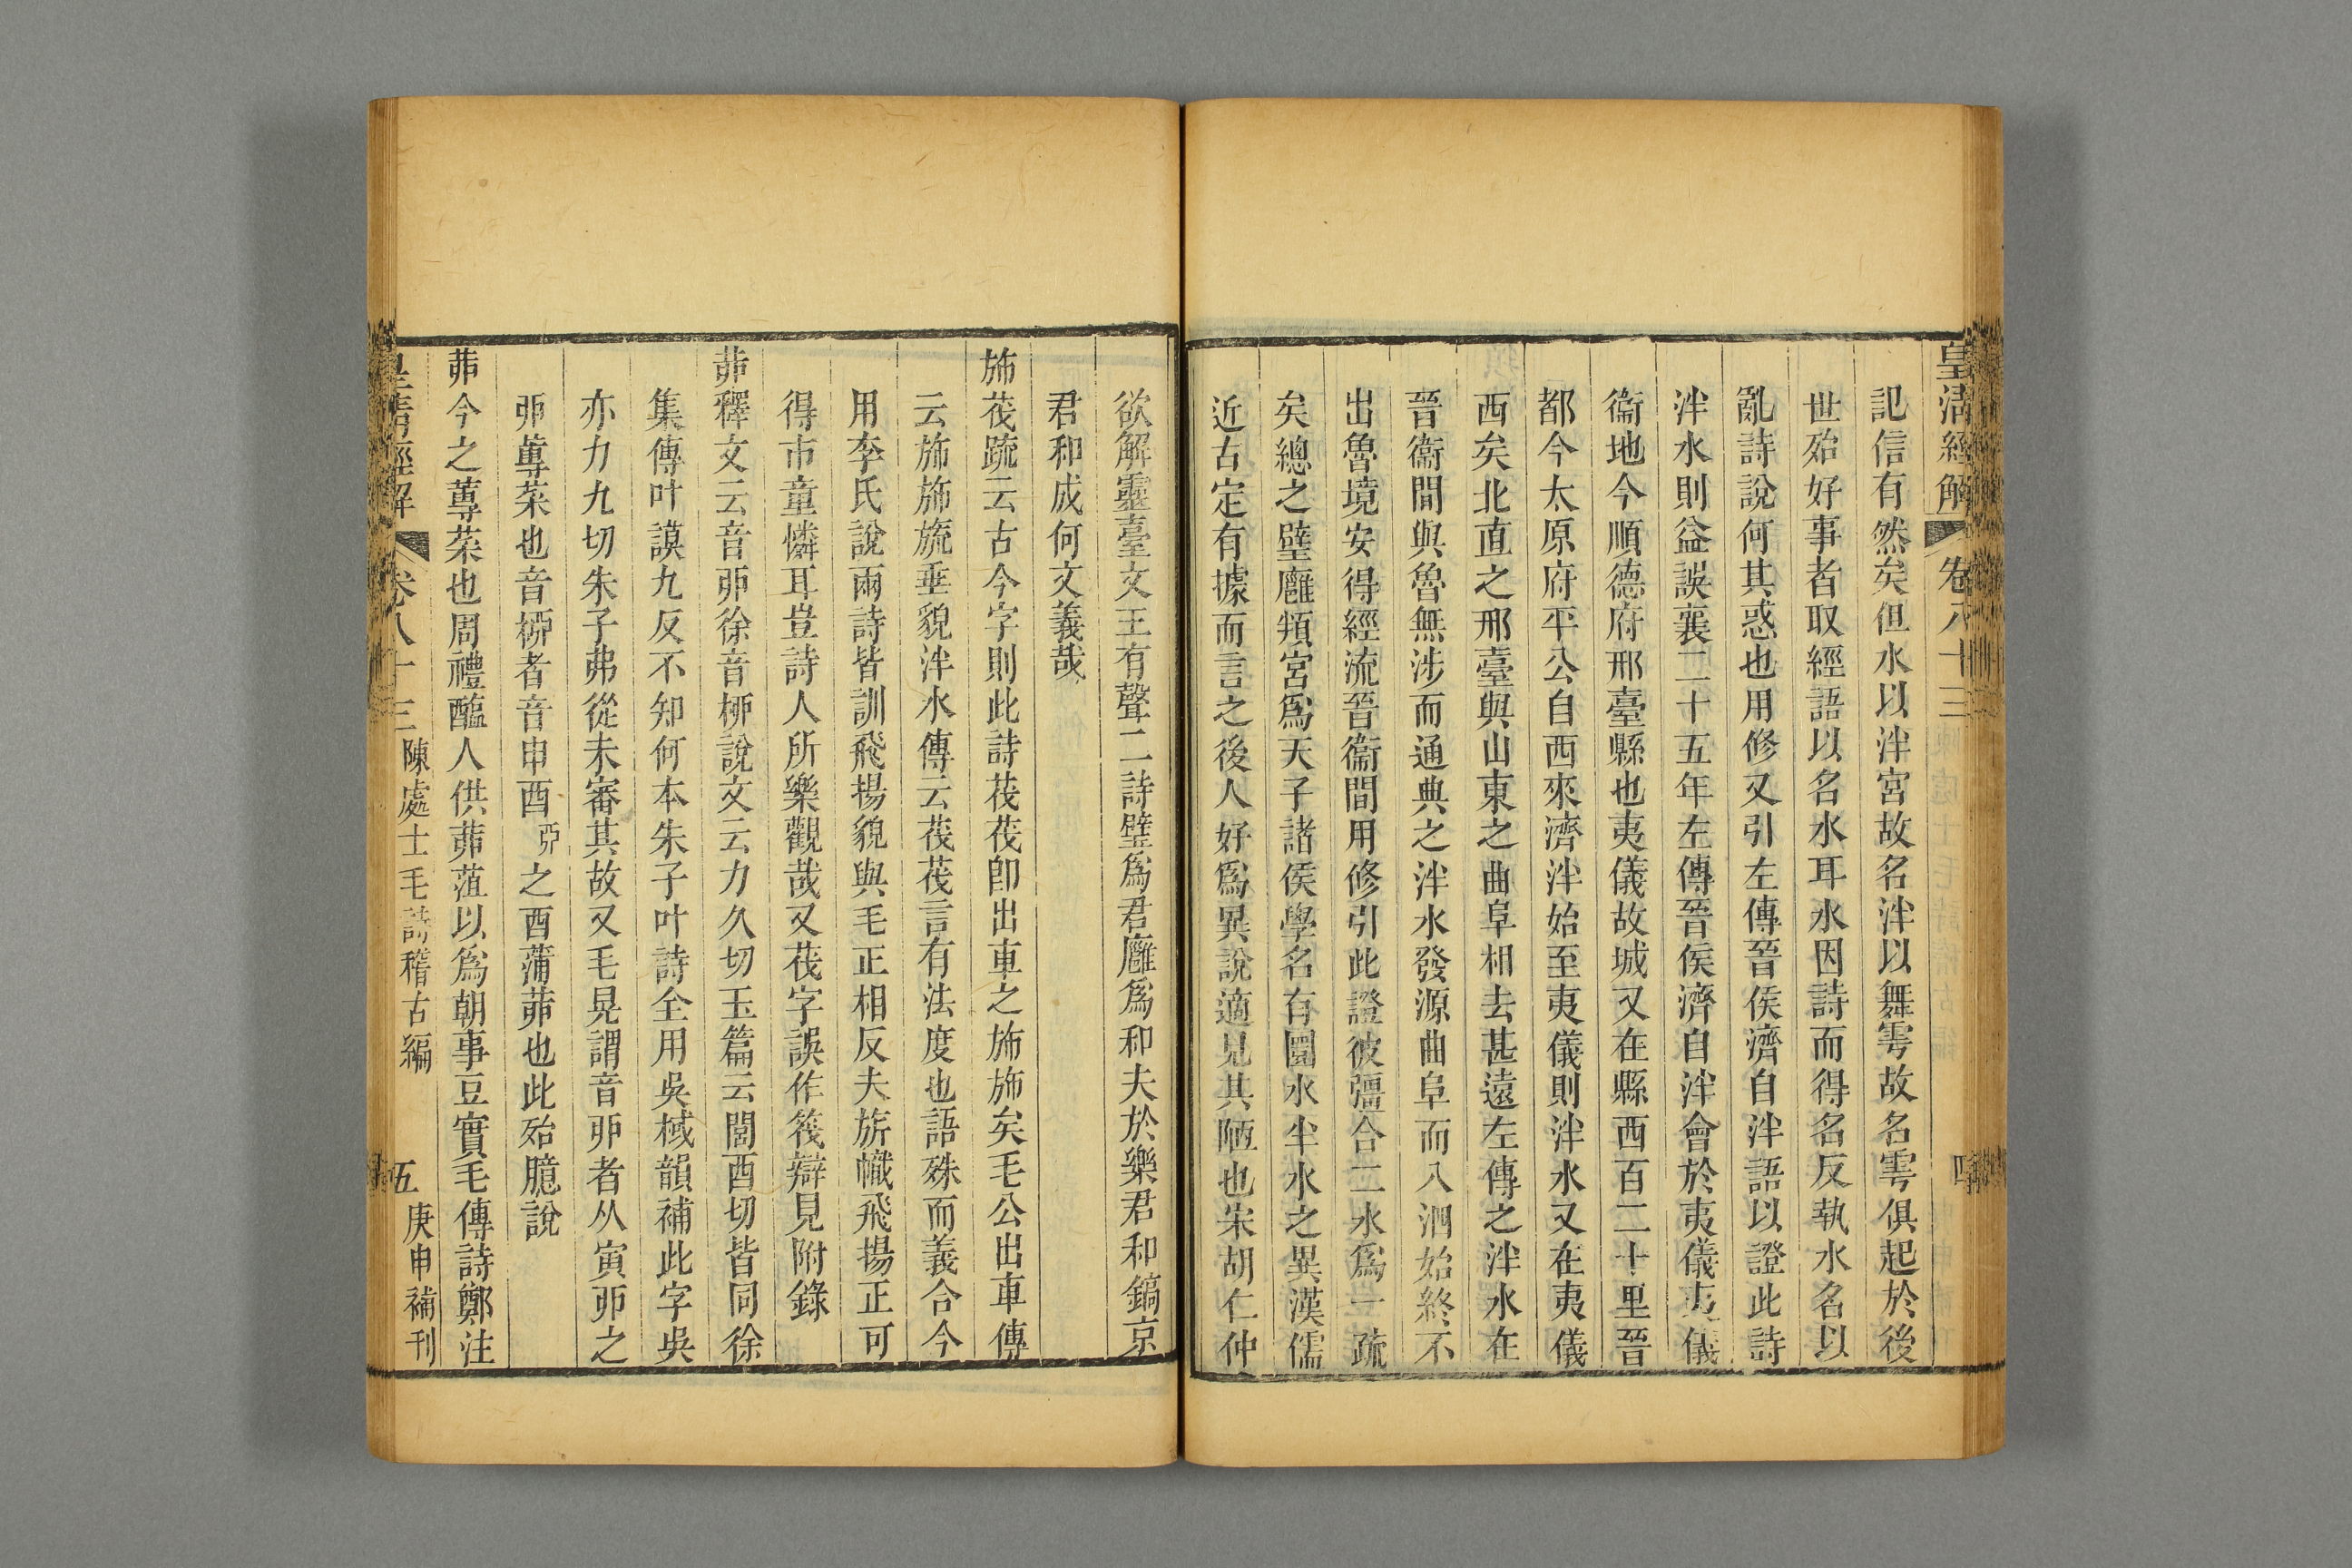 皇清經解 卷八十三 四
記信有然矣但水以泮宮故名泮以舞雩故名雩俱起於後
世殆好事者取經語以名水耳水因詩而得名反執水名以
亂詩說何其惑也用修又引左傳晉侯濟自泮語以證此詩
泮水則益誤襄二十五年左傳晉侯濟自泮會於夷儀夷儀
衞地今順德府邢臺縣也夷儀故城又在縣西百二十里晉
都今太原府平公自西來濟泮始至夷儀則泮水又在夷儀
西矣北直之邢臺與山東之曲阜相去甚遠左傳之泮水在
晉衞間與魯無涉而通典之泮水發源曲阜而入泗始終不
出魯境安得經流晉衞間用修引此證彼彊合二水爲一疏
矣總之璧廱頖宮爲天子諸侯學名有圜水半水之異漢儒
近古定有據而言之後人好爲異說適見其陋也宋胡仁仲
欲解靈臺文王有聲二詩璧爲君廱爲和夫於樂君和鎬京
君和成何文義哉
斾茷疏云古今字則此詩茷茷卽出車之斾斾矣毛公出車傳
云斾斾旒垂貌泮水傳云茷茷言有法度也語殊而義合今
用李氏說兩詩皆訓飛揚貌與毛正相反夫旂幟飛揚正可
得市童憐耳豈詩人所樂觀哉又茷字誤作筏辯見附錄
茆釋文云音丣徐音栁說文云力久切玉篇云閭酉切皆同徐
集傳叶謨九反不知何本朱子叶詩全用吳棫韻補此字吳
亦力九切朱子弗從未審其故又毛晃謂音丣者从寅丣之
丣蓴菜也音桺者音申酉丣之酉蒲茆也此殆臆說
茆今之蓴菜也周禮醢人供茆菹以爲朝事豆實毛傳詩鄭注
皇清經解 卷八十三 陳處士毛詩稽古編 五 庚申補刊